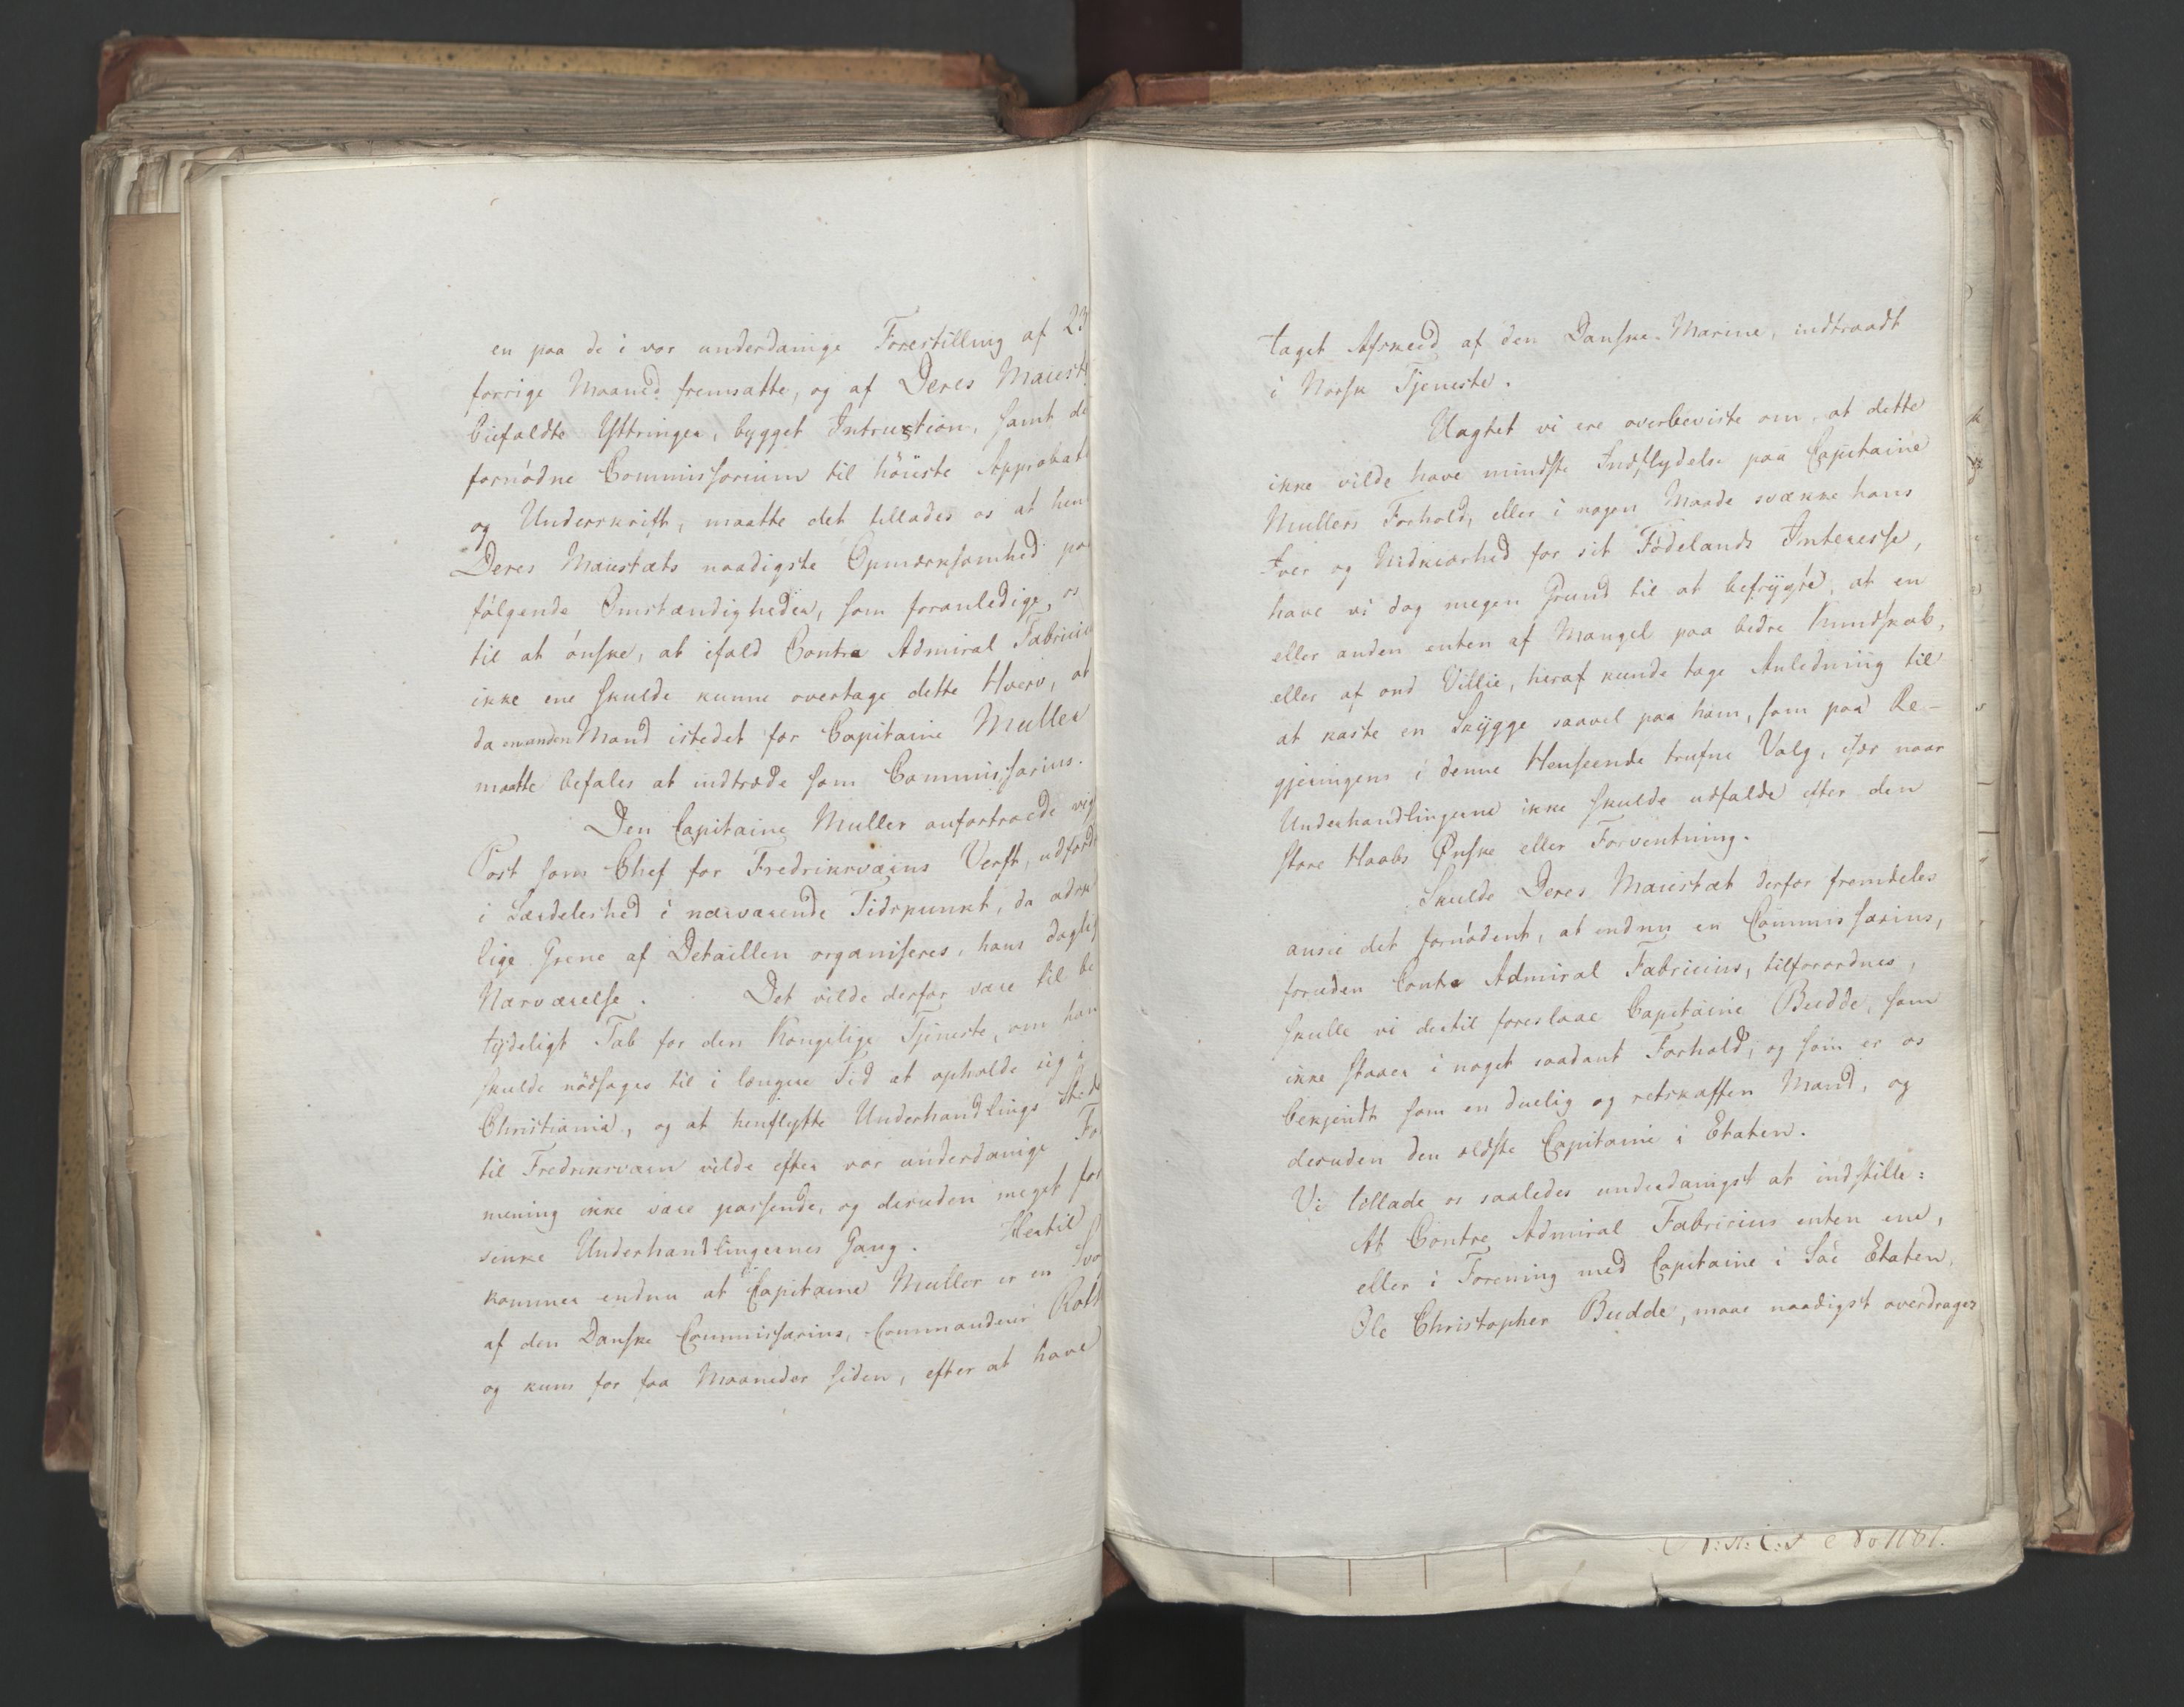 en paa de i vor underdanige Forestilling af 23
forrige Maaned fremsatte, og af Deres Maiest
biefaldte Yttringer, bygget Intruction, samt de
fornödne Commissorium til höieste Approbat
og Underskrift, maatte det tillades os at hen
Deres Maiestæts naadigste Opmærksomhed pa
fölgende Omstændigheder, som foranledige os
til at önske, at ifald Contra Admiral Fabriciu
ikke ene skulde kunne overtage dette Hverv, at
da en anden Mand istedet for Capitaine Muller
maatte befales at indtræde som Commissarius.
Den Capitaine Muller anfortroede vig
Post som Chef for Fredriksværns Verft, udford
i Særdeleshed i nærværende Tidspunkt, da adsk
lige Grene af Detaillen organiseres, hans dagli
Nærværelse. Det vilde derfor være til be
tydeligt Tab for den Kongelige Tjeneste, om han
skulde nödsages til i længere Tid at opholde sig i
Christiania, og at henflytte Underhandlings Sted
til Fredriksværn vilde efter vor underdanige For
mening ikke være passende, og desuden meget for
sinke Underhandlingernes Gang. Hertil
kommer endnu at Capitaine Muller er en Svo
af den Danske Commissarius, Commandeur Roth
og kuns for faa Maaneder siden, efter at have
taget Afskeed af den Danske Marine, indtraadt
i Norsk Tjeneste.
Uagtet vi ere overbeviste om, at dette
ikke vilde have mindste Indflydelse paa Capitaine
Mullers Forhold, eller i nogen Maade svække hans
Iver og Nidkiærhed for sit Födelands Interesse,
have vi dog megen Grund til at befrygte, at en
eller anden enten af Mangel paa bedre Kundskab,
eller af ond Villie, heraf kunde tage Anledning til
at kaste en Skygge saavel paa ham, som paa Re-
gjeringens i denne Henseende trufne Valg, især naar
Underhandlingerne ikke skulde udfalde efter den
store Haabs Önske eller Forventning.
Skulde Deres Maiestæt derfor fremdeles
ansee det fornödent, at endnu en Commissarius,
foruden Contra Admiral Fabricius, tilforordnes,
skulle vi dertil foreslaae Capitaine Budde, som
ikke staaer i noget saadant Forhold, og som er os
bekjendt som en duelig og retskaffen Mand, og
desuden den ældste Capitaine i Etaten.
Vi tillade os saaledes underdanigst at indstille:
At Contre Admiral Fabricius enten ene,
eller i Forening med Capitaine i Söe Etaten,
Ole Christopher Budde, maae naadigst overdrages